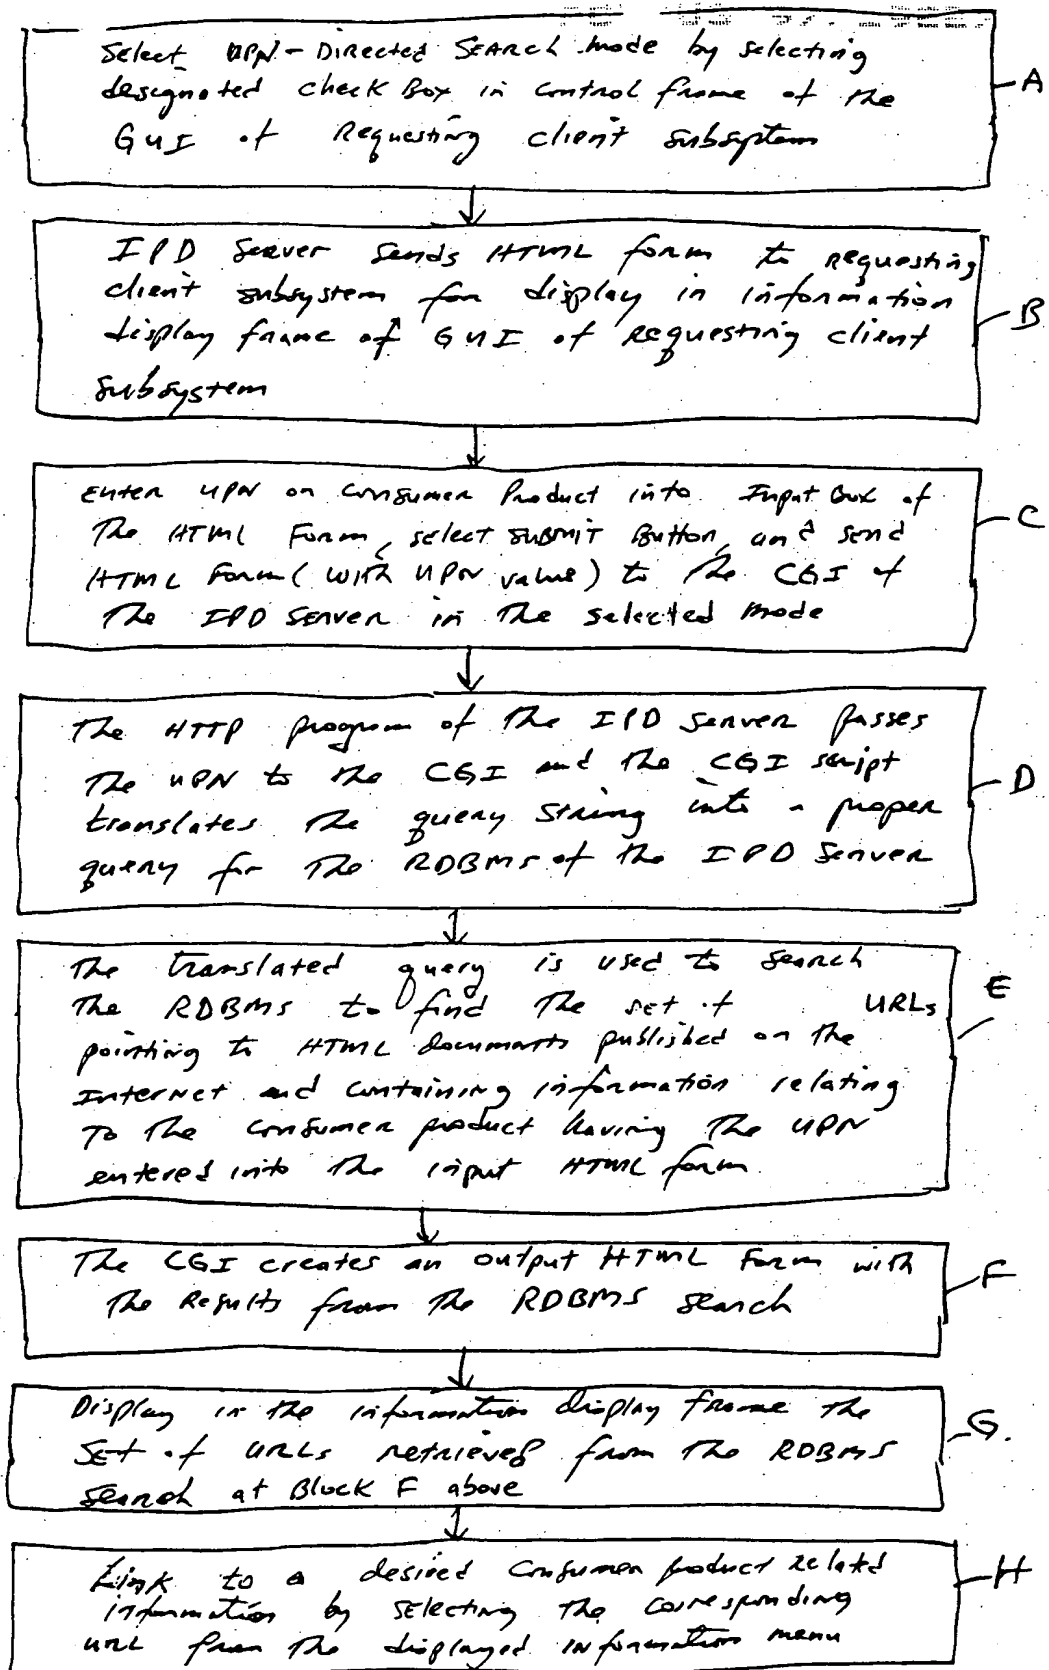 Select UPN-Directed SEARCH mode by selecting
designated check Box in control frame of the
GUI of Requesting client subsystem
A
IPD Server sends HTML form to requesting
client subsystem for display in information
display frame of GUI of requesting client
subsystem
B
Enter UPN on Consumer Product into Input Box of
The HTML Form, select SUBMIT Button, and send
HTML Form (with UPN value) to The CGI of
The IPD SERVER in The selected mode
C
The HTTP program of the IPD Server passes
The UPN to the CGI and the CGI script
translates The query String into a proper
query for The RDBMS of the IPD Server
D
The translated query is used to search
The RDBMS to find The set of URLs
pointing to HTML documents published on the
Internet and containing information relating
To The consumer product having The UPN
entered into The input HTML form
E
The CGI creates an output HTML Form with
The Results from The RDBMS Search
F
Display in the information display frame the
Set of URLs retrieved from The RDBMS
Search at Block F above
G.
Link to a desired Consumer product related
information by selecting the corresponding
URL from The displayed information menu
H